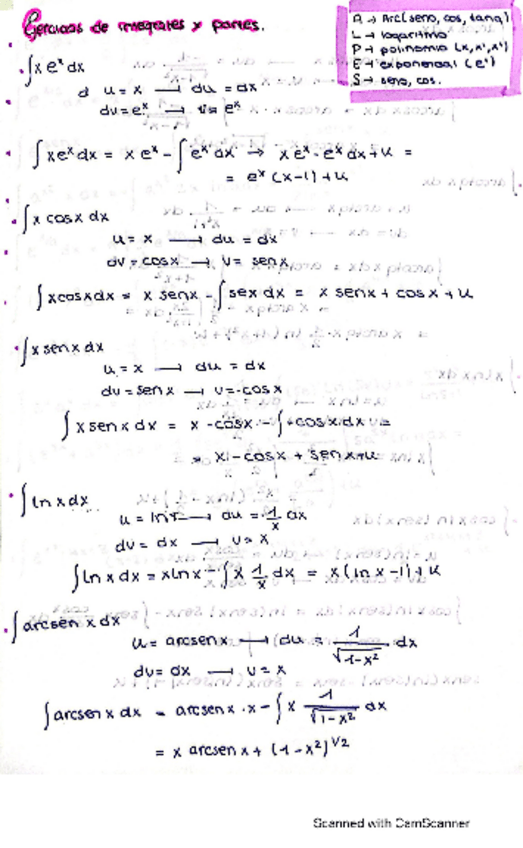 Ejercicios de integrales x partes.
A → Arc (seno, cos, tang)
L → logaritmo
P → polinomio (x, x², x³)
E → exponencial (eˣ)
S → seno, cos.
· ∫ x eˣ dx
u = x → du = dx
dv = eˣ → v = eˣ
· ∫ x eˣ dx = x eˣ - ∫ eˣ dx → x eˣ - eˣ dx + K =
= eˣ (x-1) + K
· ∫ x cosx dx
u = x → du = dx
dv = cosx → v = senx
∫ xcosxdx = x senx - ∫ sex dx = x senx + cosx + K
· ∫ x senx dx
u = x → du = dx
dv = senx → v = -cosx
∫ x senx dx = x -cosx - ∫ -cosx dx =
= x - cosx + senx + K
· ∫ ln x dx
u = lnx → du = 1/x dx
dv = dx → v = x
∫ ln x dx = xlnx - ∫ x 1/x dx = x (ln x - 1) + K
· ∫ arcsen x dx
u = arcsenx → du = 1/√1-x² dx
dv = dx → v = x
∫ arcsen x dx = arcsenx · x - ∫ x 1/√1-x² dx
= x arcsen x + (1-x²)^1/2
Scanned with CamScanner